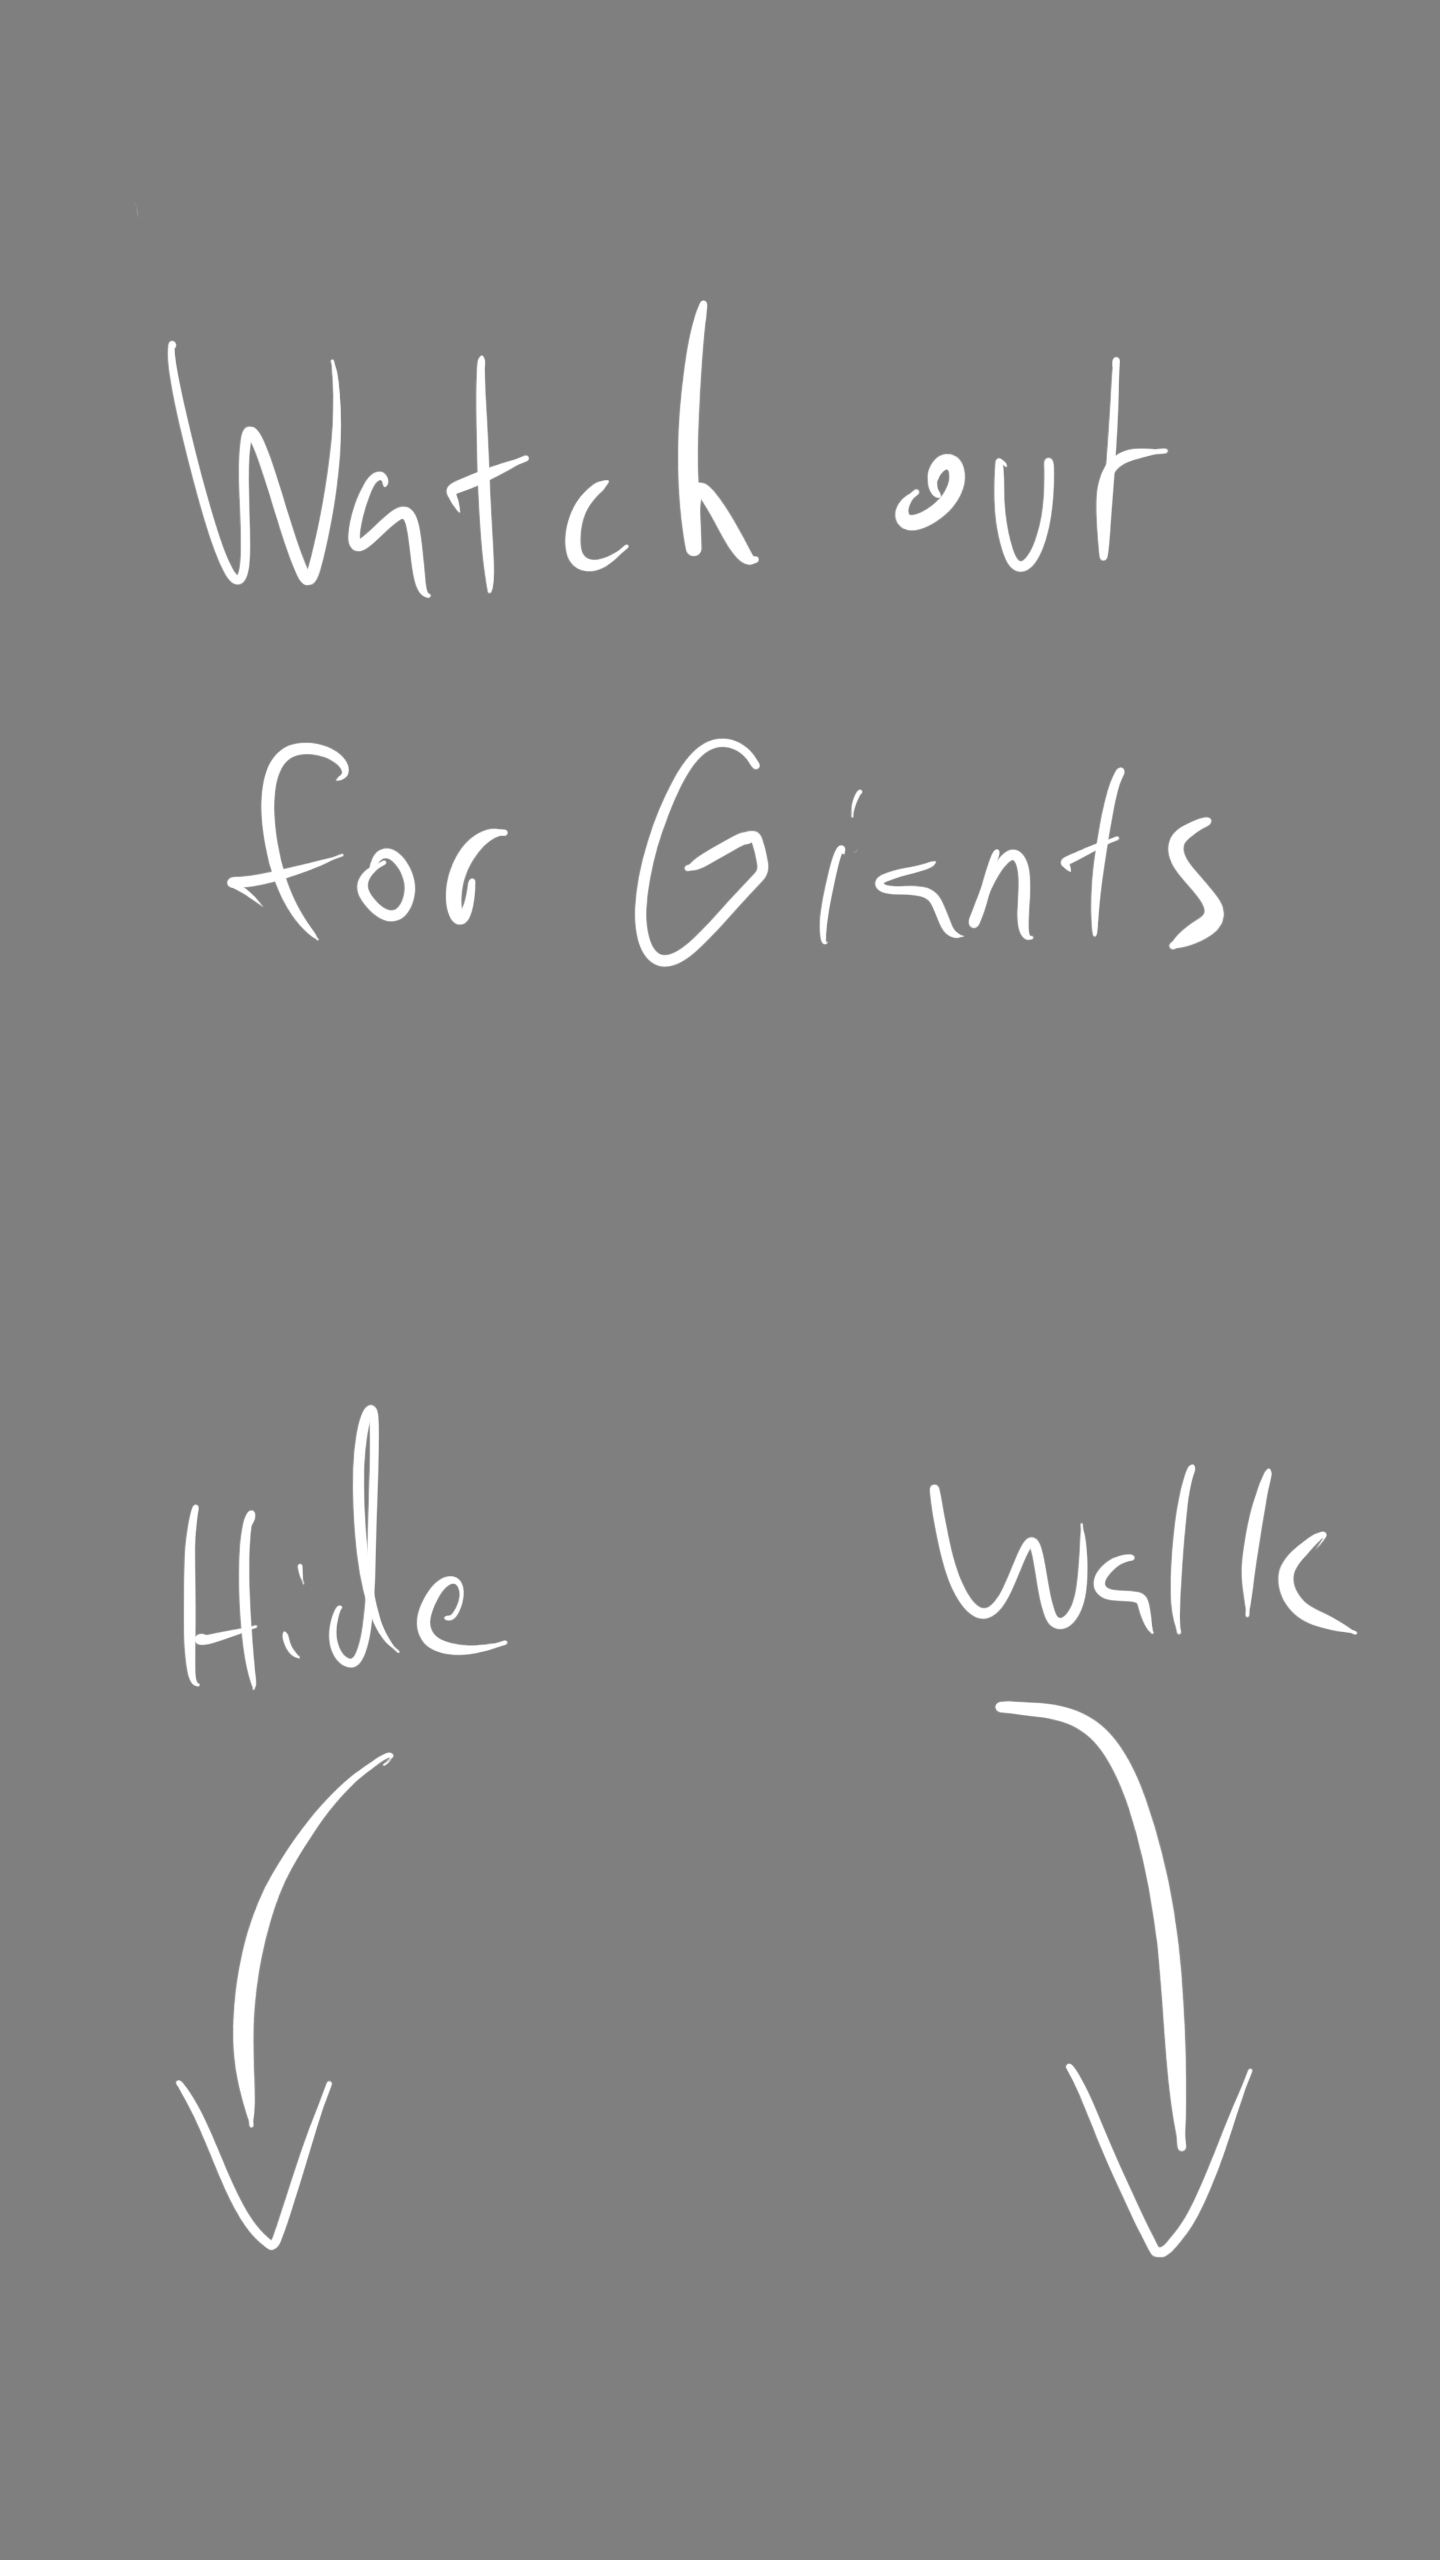 Watch out
for Giants
Hide Walk